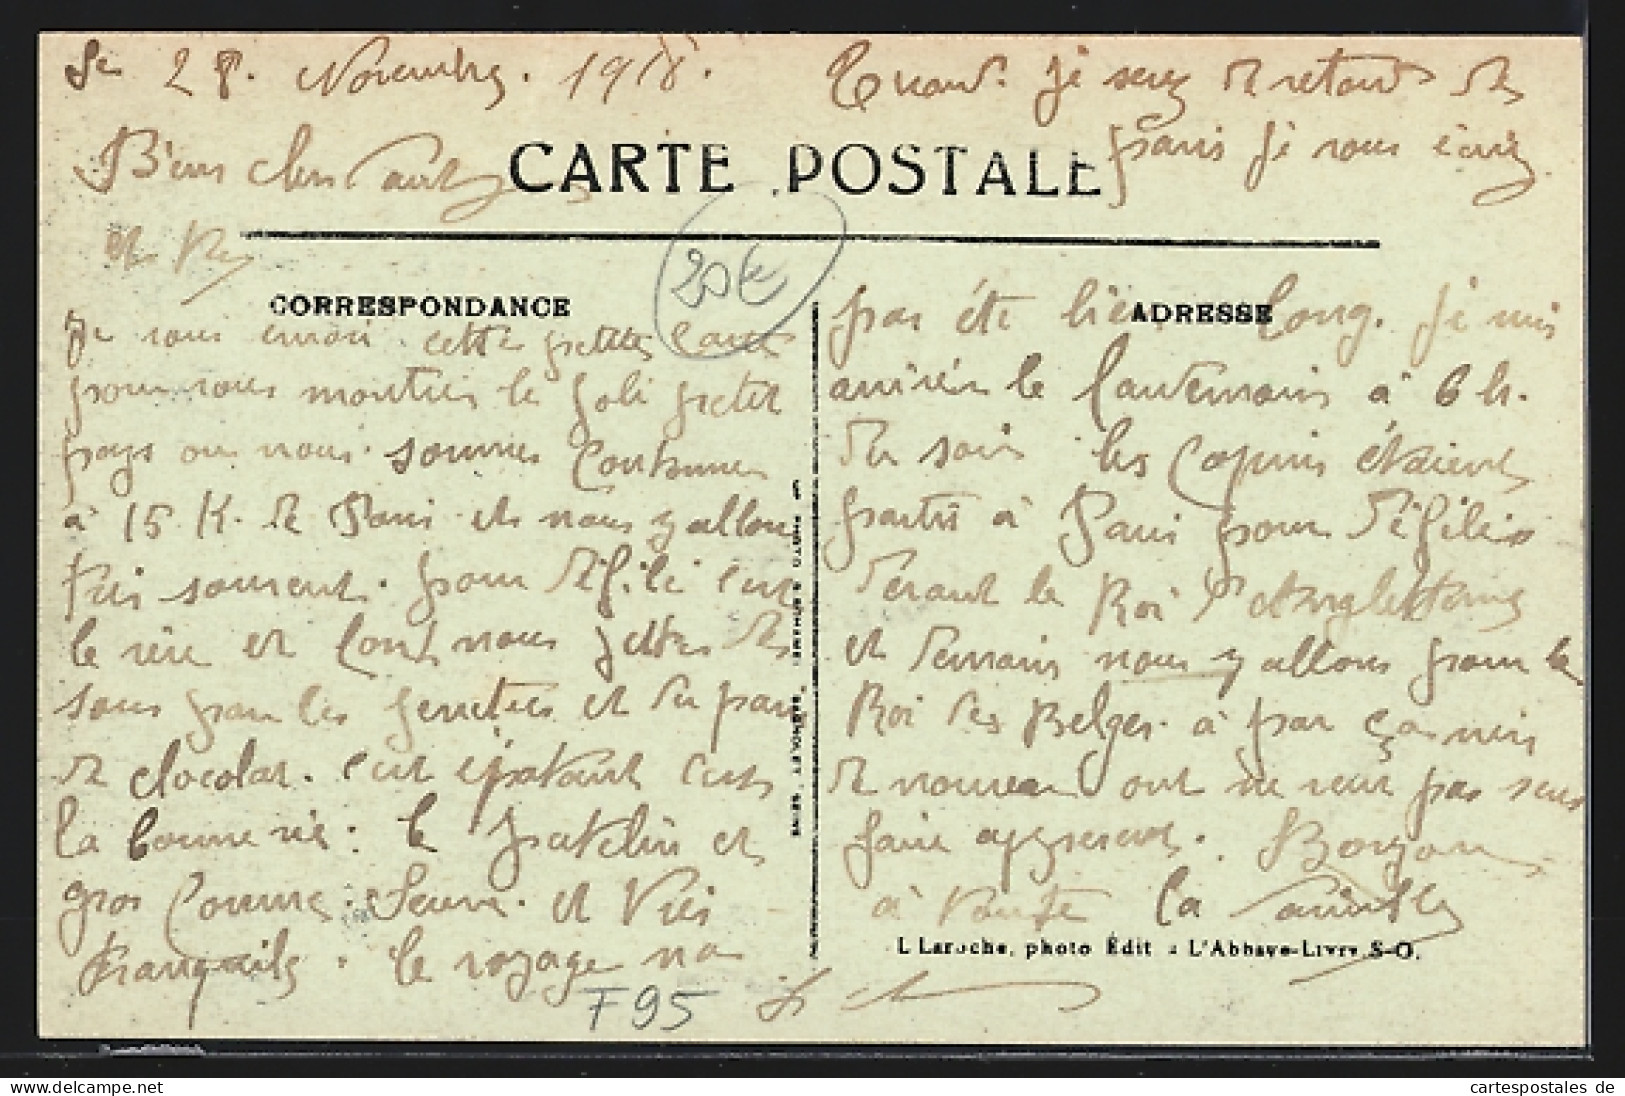 Le 28. Novembre. 1918.
Bien cher
et
CARTE POSTALE
CORRESPONDANCE
Je vous envoi cette petite carte
pour vous montrer le joli petit
pays ou nous sommes
à 15 K. de Paris et nous y allons
très souvent. pour défilé c'est
le rêve et tout nous jettes des
sous par les fenetres et du pain
de chocolat. c'est épatant c'est
la bonne vie. le patelin est
gros comme. et très
tranquille. le voyage na
20€
F95
Quand je serez de retour de
paris je vous écrirez
ADRESSE
pas été bien long. je suis
arrivér le landemain à 6 h.
du soir les copins étaient
partis à Paris pour défiler
devant le Roi d'Angleterre
et demain nous y allons pour le
Roi des Belges. à par ça rien
de nouveau ont ne veut pas
faire
à toute la famille
L Laroche, photo Édit L'Abbaye-Livry S-O.
cartespostales de
www.cartespostales.de